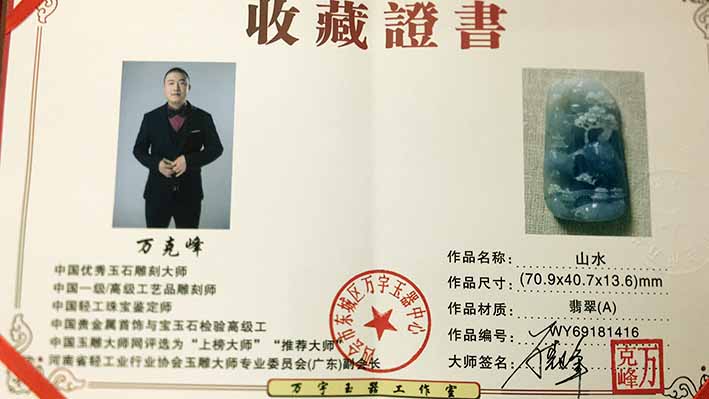 收藏證書
万克峰
中国优秀玉石雕刻大师
中国一级/高级工艺品雕刻师
中国轻工珠宝鉴定师
中国贵金属首饰与宝玉石检验高级工
中国玉雕大师网评选为“上榜大师”“推荐大师”
河南省轻工业行业协会玉雕大师专业委员会(广东)副会长
四会市东城区万宇玉器中心
作品名称: 山水
作品尺寸: (70.9x40.7x13.6)mm
作品材质: 翡翠(A)
作品编号: WY69181416
大师签名: 万克峰
万克峰
万宇玉器工作室